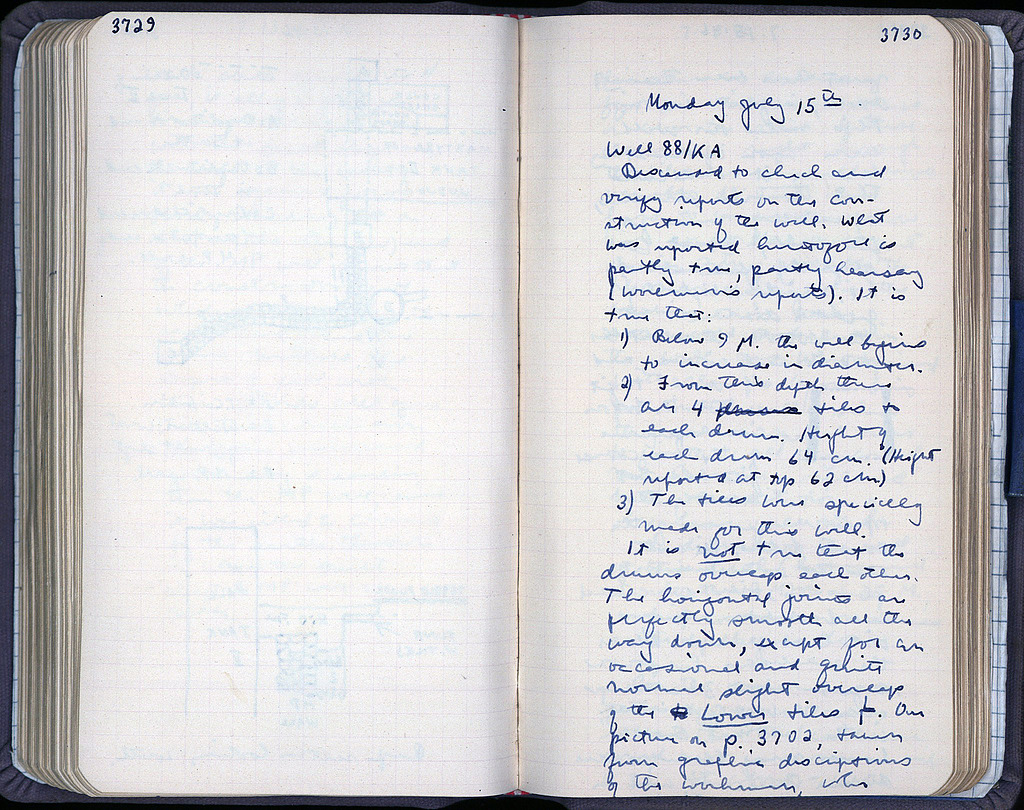 3729
3730
Monday July 15th.
Well 88/KA
Descended to check and
verify reports on the con-
struction of the well. What
was reported heretofore is
partly true, partly hearsay
(workmen's reports). It is
true that:
1) Below 9 M. the well begins
to increase in diameter.
2) From this depth there
are 4 tiles to
each drum. Height of
each drum 64 cm. (Height
reported at top 62 cm)
3) The tiles were specially
made for this well.
It is not true that the
drums overlap each other.
The horizontal joints are
perfectly smooth all the
way down, except for an
occasional and quite
normal slight overlap
of the Lower tiles. Our
picture on p. 3702, taken
from graphic descriptions
of the workmen, who